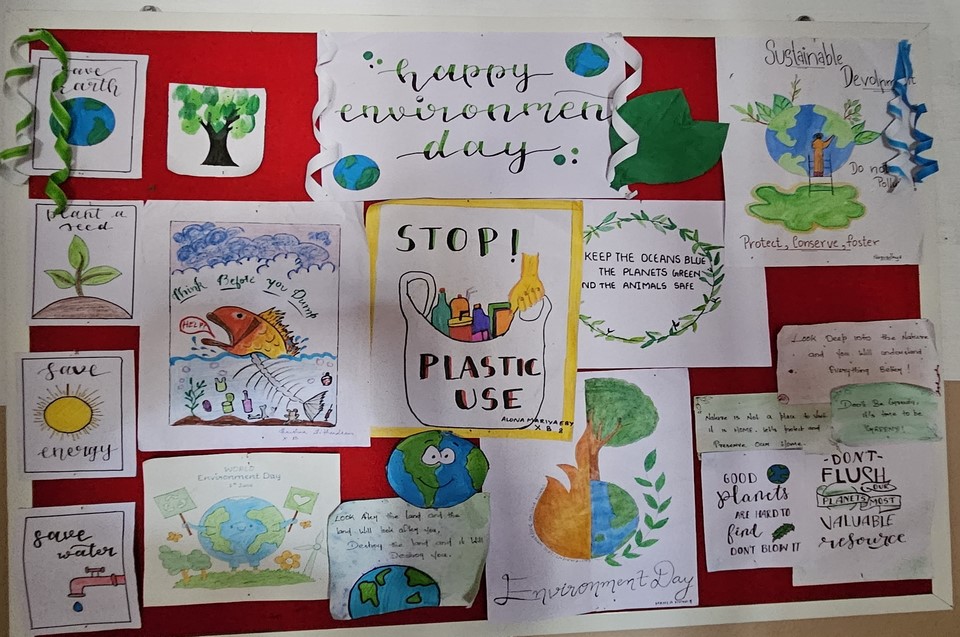 save
earth
happy
environmen
day
Sustainable
Do not
Protect, Conserve, foster
plant a
seed
Think Before you Dump
HELP!
STOP!
PLASTIC
USE
ALONA MARIYA EBY
X B
KEEP THE OCEANS BLUE
THE PLANETS GREEN
ND THE ANIMALS SAFE
save
energy
Look Deep into the Nature
and you will understand
Everything Better!
Nature is Not a place to visit
it is Home. lets protect and
Preserve Our Home
Don't Be Greedy,
its time to be
Greeny!
WORLD
Environment Day
5th June
Look After the land and the
land will look after you,
Destroy the land and it will
Destroy you.
GOOD
planets
ARE HARD TO
find
DON'T BLOW IT
-DON'T-
FLUSH
OUR
PLANETS MOST
VALUABLE
resource
save
water
Environment Day